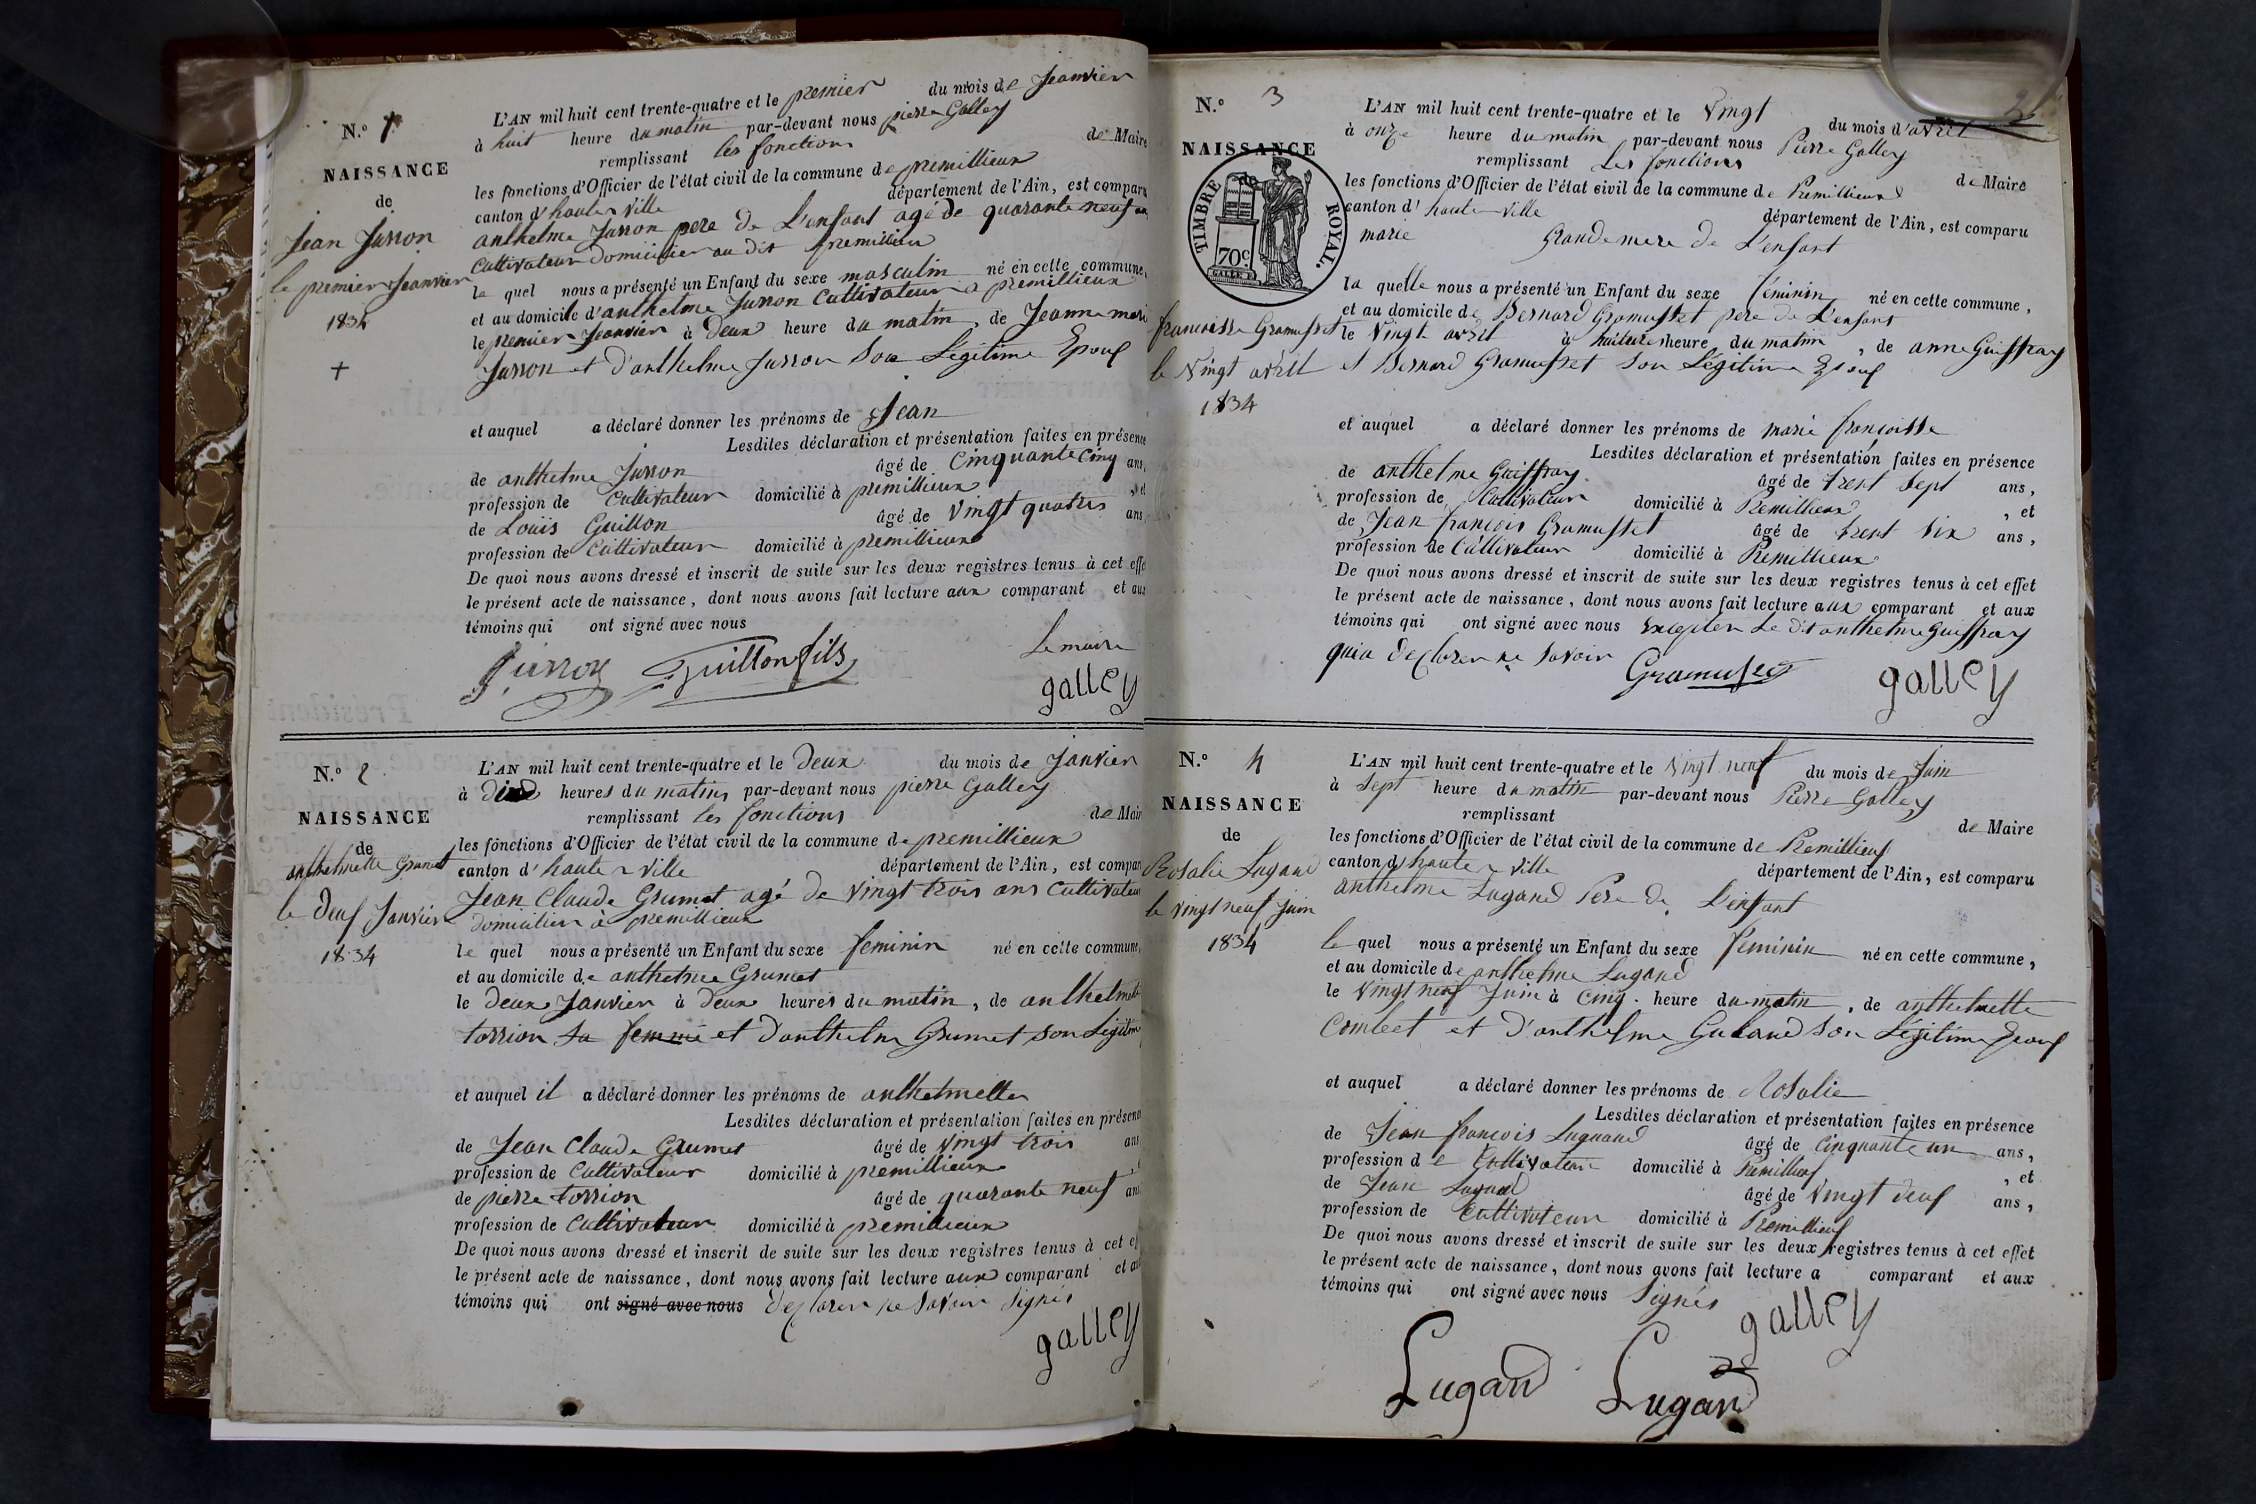 N.º 1
NAISSANCE
de
Jean Jurron
le premier Jeanvier
1834
L'AN mil huit cent trente-quatre et le premier du mois de Jeanvier
à huit heure du matin par-devant nous pierre Galley
remplissant les fonctions de Maire
les fonctions d'Officier de l'état civil de la commune de premillieux
canton d'hauteville département de l'Ain, est comparu
anthelme Jurron pere de L'enfant agé de quarante neuf an
Cultivateur domicilier au dit premillieu
le quel nous a présenté un Enfant du sexe masculin né en cette commune,
et au domicile d'anthelme Jurron Cultivateur a premillieux
le premier Jeanvier à deux heure du matin, de Jeanne mari
Jurron et d'anthelme Jurron Son Légitime Epouf
et auquel a déclaré donner les prénoms de Jean
Lesdites déclaration et présentation faites en présence
de anthelme Jurron âgé de Cinquante Cinq ans,
profession de Cultivateur domicilié à premillieux, et
de Louis Guillon âgé de Vingt quatres ans
profession de Cultivateur domicilié à premillieux
De quoi nous avons dressé et inscrit de suite sur les deux registres tenus à cet effe
le présent acte de naissance, dont nous avons fait lecture aux comparant et aux
témoins qui ont signé avec nous
Le maire
Jurron Guillon fils galley
N.º 2
NAISSANCE
de
anthelmette Grumet
le deuf Janvier
1834
L'AN mil huit cent trente-quatre et le Deux du mois de Janvier
à heures du matins par-devant nous pierre Galley
remplissant les fonctions de Mair
les fonctions d'Officier de l'état civil de la commune de premillieux
canton d'hauteville département de l'Ain, est compar
Jean Claude Grumet agé de Vingt trois ans Cultivateur
domicilier à premillieux
le quel nous a présenté un Enfant du sexe feminin né en cette commune,
et au domicile de anthelme Grumet
le deux Janvier à deux heures du matin, de anthelmette
torrion sa femme et d'anthelme Grumet son Légitim
et auquel il a déclaré donner les prénoms de anthelmette
Lesdites déclaration et présentation faites en présen
de Jean Claude Grumet âgé de Vingt trois ans
profession de Cultivateur domicilié à premillieux
de pierre torrion âgé de quarante neuf an
profession de Cultivateur domicilié à premillieux
De quoi nous avons dressé et inscrit de suite sur les deux registres tenus à cet ef
le présent acte de naissance, dont nous avons fait lecture aux comparant et au
témoins qui ont signé avec nous declarer ne Savoir Signés
galley
2
N.º 3
NAISSANCE
de
TIMBRE ROYAL.
70c.
francoisse Gramusset
le Vingt avril
1834
L'AN mil huit cent trente-quatre et le Vingt du mois d'avril
à onze heure du matin par-devant nous Pierre Galley
remplissant Les fonctions de Maire
les fonctions d'Officier de l'état civil de la commune de Premillieux
canton d'hauteville département de l'Ain, est comparu
marie Grandemere de L'enfant
la quelle nous a présenté un Enfant du sexe féminin né en cette commune,
et au domicile de Bernard Gramusset pere de L'enfant
le Vingt avril à heure du matin, de anne Guiffray
et Bernard Gramusset Son Légitime Epouf
et auquel a déclaré donner les prénoms de marie francoisse
Lesdites déclaration et présentation faites en présence
de anthelme Guiffray âgé de trent Sept ans,
profession de Cultivateur domicilié à Premillieux, et
de Jean françois Gramusset âgé de trent Six ans,
profession de Cultivateur domicilié à Premillieux
De quoi nous avons dressé et inscrit de suite sur les deux registres tenus à cet effet
le présent acte de naissance, dont nous avons fait lecture aux comparant et aux
témoins qui ont signé avec nous Excepter Le dit anthelme Guiffray
qui a declarer ne Savoir
Gramusset galley
N.º 4
NAISSANCE
de
Rosalie Lugand
le vingt neuf Juin
1834
L'AN mil huit cent trente-quatre et le Vingt neuf du mois de Juin
à Sept heure du matin par-devant nous Pierre Galley
remplissant de Maire
les fonctions d'Officier de l'état civil de la commune de Premillieuf
canton d'hauteville département de l'Ain, est comparu
anthelme Lugand Pere de L'enfant
le quel nous a présenté un Enfant du sexe féminin né en cette commune,
et au domicile de anthelme Lugand
le Vingt neuf Juin à Cinq heure du matin, de anthelmette
Combet et d'anthelme Son Légitime Epouf
et auquel a déclaré donner les prénoms de Rosalie
Lesdites déclaration et présentation faites en présence
de Jean francois Luguand âgé de Cinquante un ans,
profession de Cultivateur domicilié à Premillieuf, et
de Jean Lugand âgé de Vingt deuf ans,
profession de Cultivateur domicilié à Premillieuf
De quoi nous avons dressé et inscrit de suite sur les deux registres tenus à cet effet
le présent acte de naissance, dont nous avons fait lecture a comparant et aux
témoins qui ont signé avec nous Signés
galley
Lugand Lugand